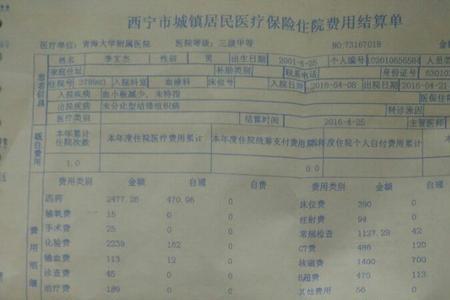 西宁市城镇居民医疗保险住院费用结算单
医疗单位: 青海大学附属医院 医院等级: 三级甲等 NO:73167018
姓名 李文杰 性别 男 出生日期 2001-6-25 个人编号
家庭住址 补助类别 联系电话 身份证号
住院号 378983 入院科室 血液科 床位号 入院日期 2016-04-08 出院日期 2016-04-21
入院疾病 血小板减少, 未特指
出院疾病 未分化型结缔组织病 转诊原因
医疗类别 结算时间 2016-4-25 主管医师
本年累计住院次数 本年度住院医疗费用累计 本年度住院统筹支付费用 年度住院个人自付费用累计
1.0
费用类别 金额 自理 自费 费用类别 金额 自理
西药 2477.26 470.96 0 床位费 390 0
输氧费 15 0 0 注射费 94 0
手术费 25 0 0 常规检查 1127.29 42
化验费 2239 162 0 CT费 486 120
输血费 113 12 0 核磁费 1400 700
诊查费 45 0 0 B超费 475 113
治疗费 189 0 0 其他费用 56 0